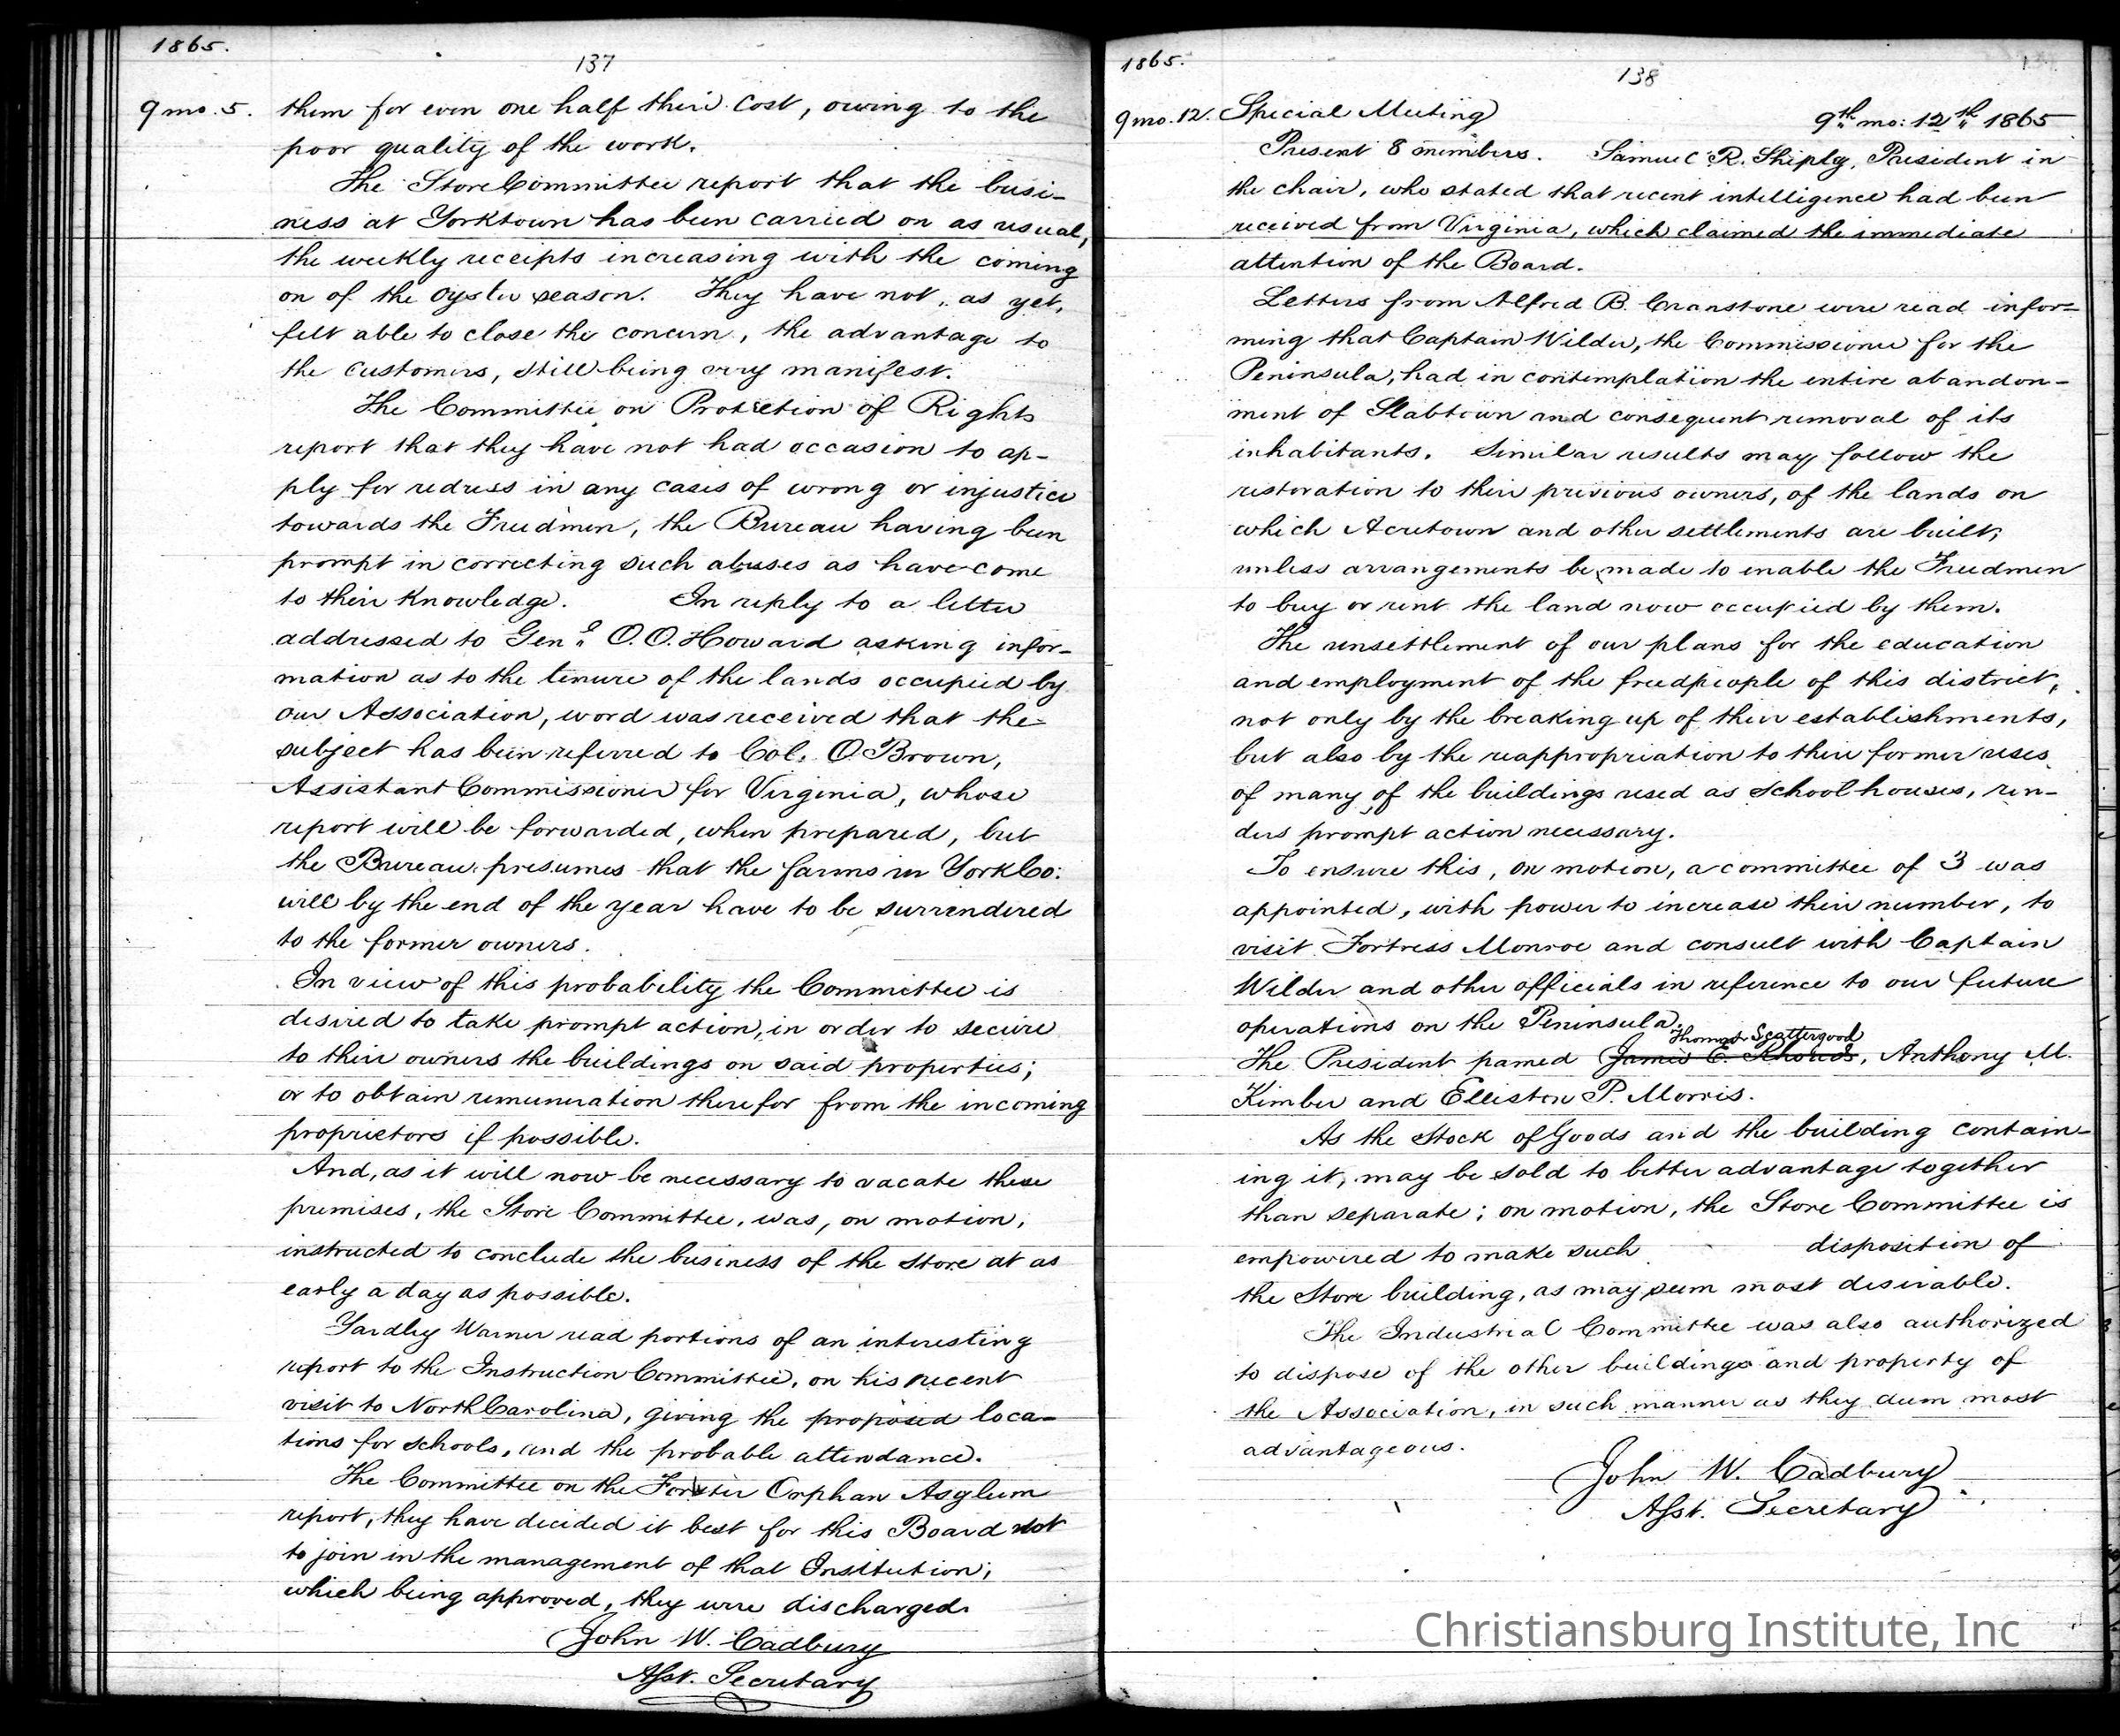 1865.
137
9 mo. 5. them for even one half their cost, owing to the
poor quality of the work.
The Store Committee report that the busi-
ness at Yorktown has been carried on as usual,
the weekly receipts increasing with the coming
on of the oyster season. They have not, as yet,
felt able to close the concern, the advantage to
the customers, still being very manifest.
The Committee on Protection of Rights
report that they have not had occasion to ap-
ply for redress in any cases of wrong or injustice
towards the Freedmen, the Bureau having been
prompt in correcting such abuses as have come
to their knowledge. In reply to a letter
addressed to Genl. O.O. Howard asking infor-
mation as to the tenure of the lands occupied by
our Association, word was received that the
subject has been referred to Col. O. Brown,
Assistant Commissioner for Virginia, whose
report will be forwarded, when prepared, but
the Bureau presumes that the farms in York Co:
will by the end of the year have to be surrendered
to the former owners.
In view of this probability the Committee is
desired to take prompt action, in order to secure
to their owners the buildings on said properties;
or to obtain remuneration therefor from the incoming
proprietors if possible.
And, as it will now be necessary to vacate these
premises, the Store Committee, was, on motion,
instructed to conclude the business of the store at as
early a day as possible.
Yardley Warner read portions of an interesting
report to the Instruction Committee, on his recent
visit to North Carolina, giving the proposed loca-
tions for schools, and the probable attendance.
The Committee on the Forster Orphan Asylum
report, they have decided it best for this Board not
to join in the management of that Institution;
which being approved, they were discharged.
John W. Cadbury
Asst. Secretary
1865.
138
9 mo. 12. Special Meeting 9th mo: 12th 1865
Present 8 members. Samuel R. Shiply, President in
the chair, who stated that recent intelligence had been
received from Virginia, which claimed the immediate
attention of the Board.
Letters from Alfred B. Cranstone were read infor=
ming that Captain Wilder, the Commissioner for the
Peninsula, had in contemplation the entire abandon-
ment of Slabtown and consequent removal of its
inhabitants. Similar results may follow the
restoration to their previous owners, of the lands on
which Acretown and other settlements are built;
unless arrangements be made to enable the Freedmen
to buy or rent the land now occupied by them.
The unsettlement of our plans for the education
and employment of the freedpeople of this district,
not only by the breaking up of their establishments,
but also by the reappropriation to their former uses
of many of the buildings used as school houses, ren-
ders prompt action necessary.
To ensure this, on motion, a committee of 3 was
appointed, with power to increase their number, to
visit Fortress Monroe and consult with Captain
Wilder and other officials in reference to our future
operations on the Peninsula.
Thomas Scattergood
The President named James E. Rhoads, Anthony M.
Kimber and Elliston P. Morris.
As the Stock of Goods and the building contain-
ing it, may be sold to better advantage together
than separate; on motion, the Store Committee is
empowered to make such disposition of
the Store building, as may seem most desirable.
The Industrial Committee was also authorized
to dispose of the other buildings and property of
the Association, in such manner as they deem most
advantageous.
John W. Cadbury
Asst. Secretary
Christiansburg Institute, Inc